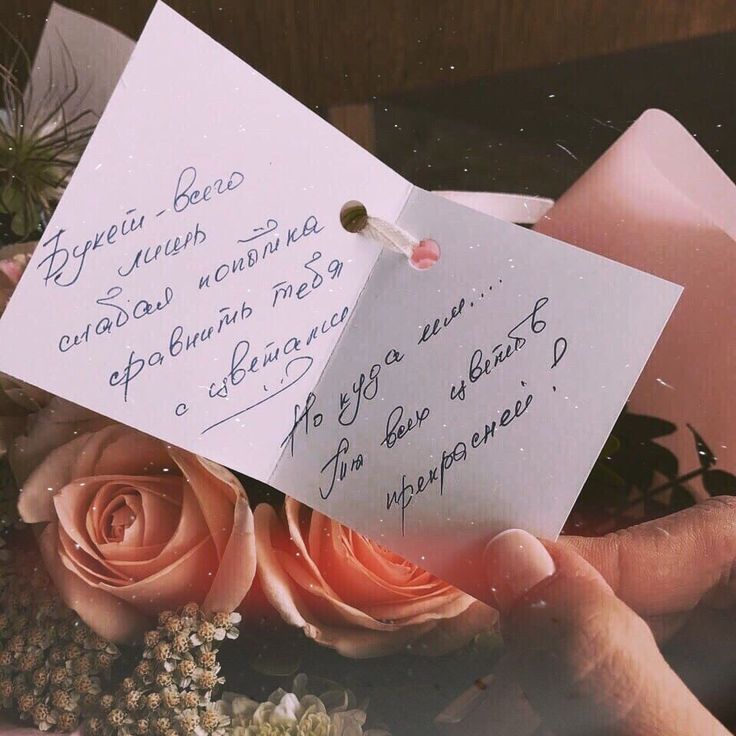 Букет-всего
лишь
слабая попытка
сравнить тебя
с цветами
Но куда им....
Ты всех цветов
прекрасней!